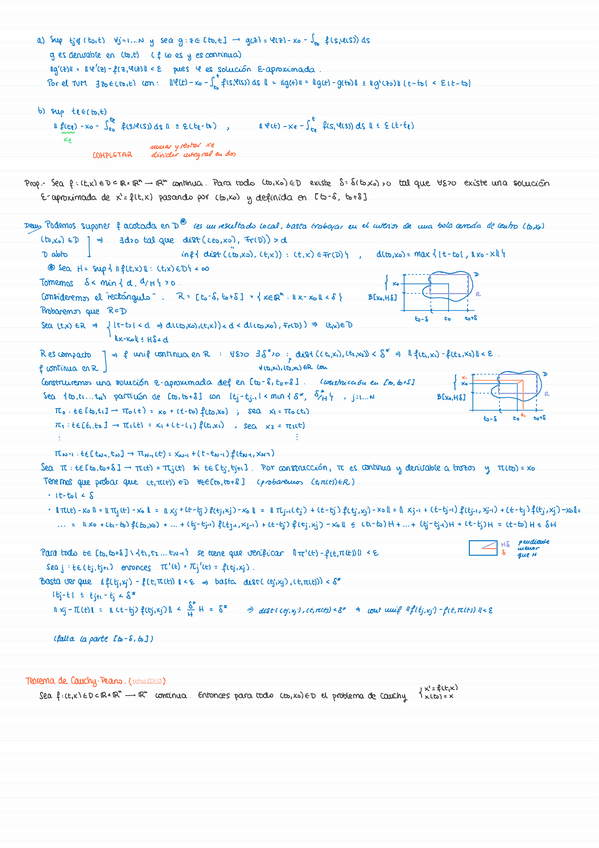 a) Sup tj ∉ (to,t) ∀j=1...N y sea g: z ∈ [to,t] → g(z) = φ(z) - xo - ∫to f(s,φ(s)) ds
g es derivable en (to,t) (f lo es y es continua)
‖g'(z)‖ = ‖φ'(z) - f(z,φ(z))‖ < ε pues φ es solución ε-aproximada.
Por el TVM ∃zo ∈ (to,t) con: ‖φ(t) - xo - ∫to^t f(s,φ(s)) ds‖ = ‖g(t)‖ = ‖g(t) - g(to)‖ ≤ ‖g'(zo)‖ (t-to) < ε(t-to)
b) Sup te ∈ (to,t)
‖φ(te) - xo - ∫to^te f(s,φ(s)) ds‖ ≤ ε(te-to) , ‖φ(t) - xe - ∫te^t f(s,φ(s)) ds‖ ≤ ε(t-te)
xe
sumar y restar xe
COMPLETAR dividir integral en dos
Prop.- Sea f: (t,x) ∈ D ⊂ R×Rⁿ → Rⁿ continua. Para todo (to,xo) ∈ D existe δ = δ(to,xo) > 0 tal que ∀ε>0 existe una solución
ε-aproximada de x' = f(t,x) pasando por (to,xo) y definida en [to-δ, to+δ]
Dem. Podemos suponer f acotada en D⊛ (es un resultado local, basta trabajar en el interior de una bola cerrada de centro (to,xo)
(to,xo) ∈ D ] ⇒ ∃d>0 tal que dist((to,xo), Fr(D)) > d
D abto inf{dist((to,xo), (t,x)) : (t,x) ∈ Fr(D)} , d(to,xo) = max{|t-to|, ‖xo-x‖}
⊛ Sea H = sup{‖f(t,x)‖ : (t,x) ∈ D} < ∞
Tomemos δ < min{d, d/H} > 0
Consideremos el "rectángulo". R = [to-δ, to+δ] × {x∈Rⁿ : ‖x-xo‖ < δ}
Probaremos que R⊂D
Sea (t,x) ∈ R ⇒ { |t-to| < d ⇒ d((to,xo),(t,x)) < d < d((to,xo), Fr(D)) ⇒ (t,x) ∈ D
‖x-xo‖ ≤ Hδ < d
xo B[xo,Hδ] D R
to-δ to to+δ
R es compacto ] ⇒ f unif continua en R : ∀ε>0 ∃δ*>0 : dist((t1,x1),(t2,x2)) < δ* ⇒ ‖f(t1,x1) - f(t2,x2)‖ < ε.
f continua en R ∀(t1,x1),(t2,x2) ∈ R con
Construiremos una solución ε-aproximada def en [to-δ, to+δ]. (construcción en [to,to+δ]
Sea {to,t1...tN} partición de [to,to+δ] con |tj-tj-1| < min{δ*, δ*/H}, j=1...N
π0: t∈[to,t1] → π0(t) = xo + (t-to) f(to,xo) ; sea x1 = π0(t1)
π1: t∈[t1,t2] → π1(t) = x1 + (t-t1) f(t1,x1) , sea x2 = π1(t)
⋮ ⋮
πN-1: t∈[tN-1,tN] → πN-1(t) = xN-1 + (t-tN-1) f(tN-1,xN-1)
B[xo,Hδ] D R
to-δ to to+δ
Sea π: t∈[to,to+δ] → π(t) = πj(t) si t∈[tj,tj+1]. Por construcción, π es continua y derivable a trozos y π(to) = xo
Tenemos que probar que (t,π(t)) ∈ D ∀t∈[to,to+δ] (probaremos (t,π(t)) ∈ R)
· |t-to| < δ
· ‖π(t) - xo‖ = ‖πj(t) - xo‖ = ‖xj + (t-tj) f(tj,xj) - xo‖ = ‖πj-1(tj) + (t-tj) f(tj,xj) - xo‖ = ‖xj-1 + (tj-tj-1) f(tj-1,xj-1) + (t-tj) f(tj,xj) - xo‖ =
... = ‖xo + (t1-to) f(to,xo) + ... + (tj-tj-1) f(tj-1,xj-1) + (t-tj) f(tj,xj) - xo‖ ≤ (t1-to)H + ... + (tj-tj-1)H + (t-tj)H = (t-to)H ≤ δH
Para todo t∈[to,to+δ] \ {t1,t2...tN-1} se tiene que verificar ‖π'(t) - f(t,π(t))‖ < ε
Hδ δ pendiente menor que H
Sea j: t∈(tj,tj+1) entonces π'(t) = πj'(t) = f(tj,xj).
Basta ver que ‖f(tj,xj) - f(t,π(t))‖ < ε ⇒ basta dist((tj,xj),(t,π(t))) < δ*
|tj-t| ≤ tj+1 - tj < δ*
‖xj - π(t)‖ = ‖(t-tj) f(tj,xj)‖ < δ*/H H = δ* ⇒ dist((tj,xj),(t,π(t))) < δ* ⇒ cont unif ‖f(tj,xj) - f(t,π(t))‖ < ε
(falta la parte [to-δ,to])
Teorema de Cauchy-Peano.
Sea f: (t,x) ∈ D ⊂ R×Rⁿ → Rⁿ continua. Entonces para todo (to,xo) ∈ D el problema de Cauchy { x' = f(t,x)
x(to) = x